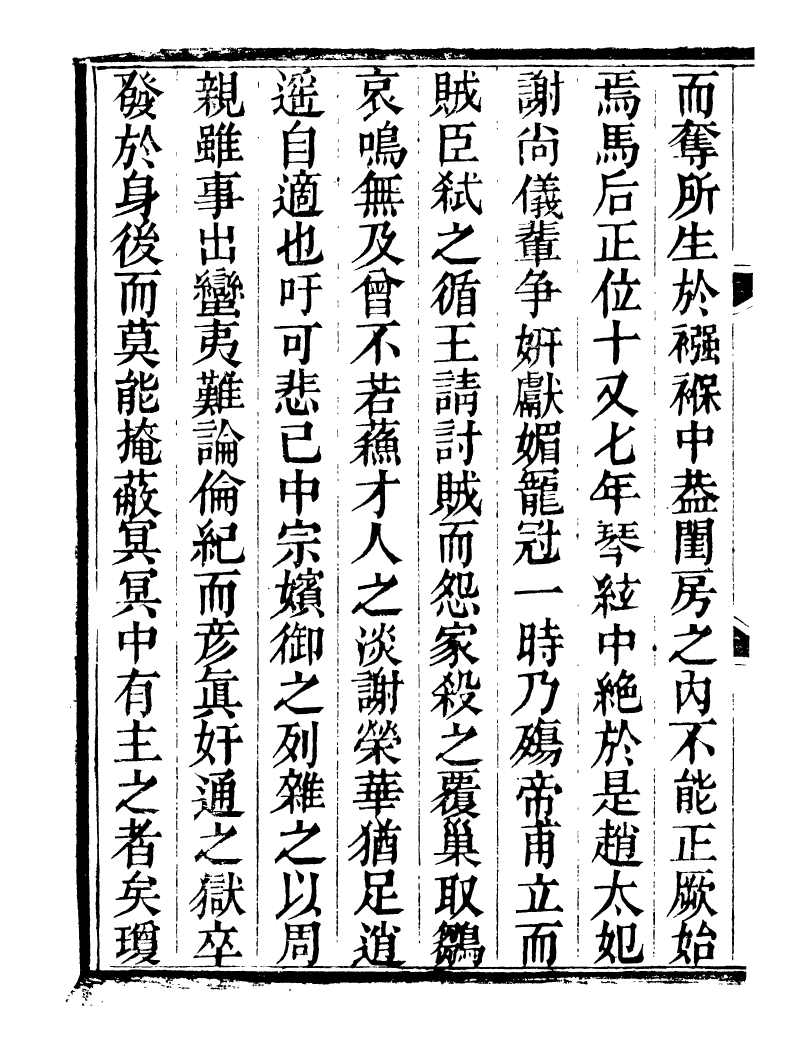 而奪所生於襁褓中葢閨房之內不能正厥始
焉馬后正位十又七年琴絃中絶於是趙太妃
謝尚儀輩争妍獻媚寵冠一時乃殤帝甫立而
賊臣弑之循王請討賊而怨家殺之覆巢取鶵
哀鳴無及曾不若蘓才人之淡謝榮華猶足逍
遥自適也吁可悲已中宗嬪御之列雜之以周
親雖事出蠻夷難論倫紀而彦眞奸通之獄卒
發於身後而莫能掩蔽冥冥中有主之者矣瓊